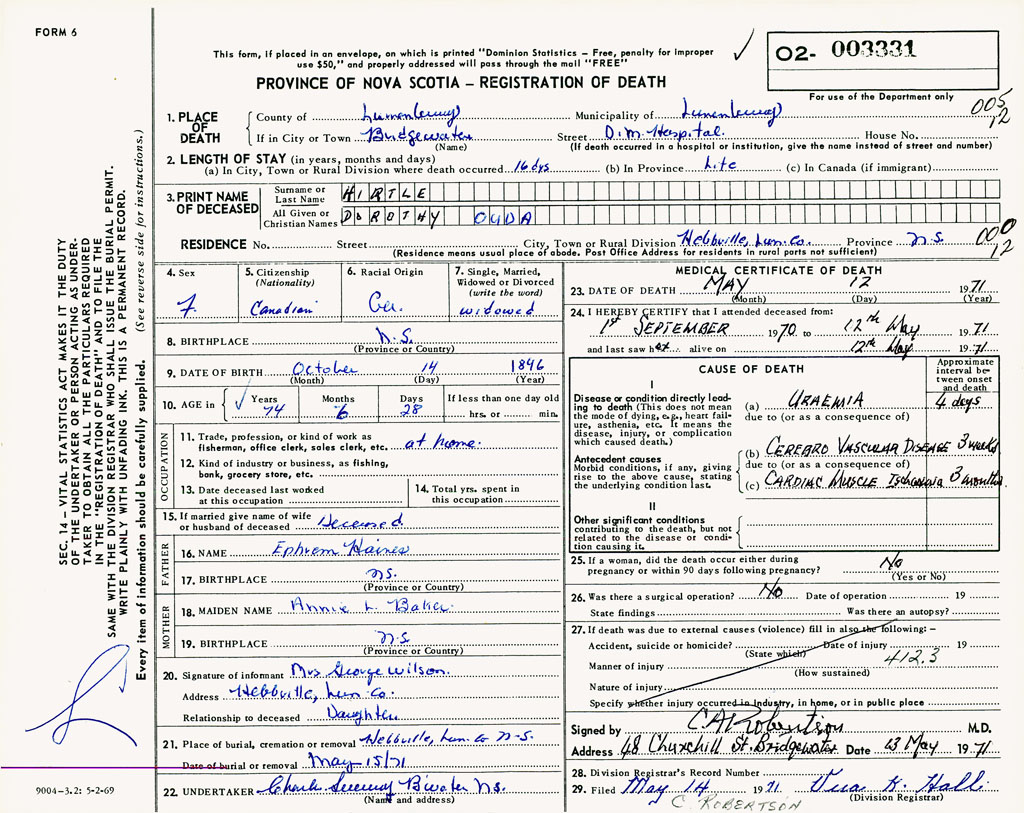 FORM 6
This form, if placed in an envelope, on which is printed "Dominion Statistics – Free, penalty for improper
use $50," and properly addressed will pass through the mail "FREE"
02- 003331
PROVINCE OF NOVA SCOTIA – REGISTRATION OF DEATH
For use of the Department only
005
12
1. PLACE OF DEATH
County of Lunenburg Municipality of Lunenburg
If in City or Town Bridgewater Street D.M. Hospital. House No.
(Name) (If death occurred in a hospital or institution, give the name instead of street and number)
2. LENGTH OF STAY (in years, months and days)
(a) In City, Town or Rural Division where death occurred 16 dys (b) In Province Life (c) In Canada (if immigrant)
3. PRINT NAME OF DECEASED
Surname or Last Name HIRTLE
All Given or Christian Names DOROTHY OUDA
RESIDENCE No. Street City, Town or Rural Division Hebbville, Lun. Co. Province N.S.
000
12
(Residence means usual place of abode. Post Office Address for residents in rural parts not sufficient)
4. Sex F
5. Citizenship (Nationality) Canadian
6. Racial Origin Ger.
7. Single, Married, Widowed or Divorced (write the word) widowed
8. BIRTHPLACE N.S.
(Province or Country)
9. DATE OF BIRTH October 14 1896
(Month) (Day) (Year)
10. AGE in Years 74 Months 6 Days 28 If less than one day old hrs. or min.
OCCUPATION
11. Trade, profession, or kind of work as
fisherman, office clerk, sales clerk, etc. at home.
12. Kind of industry or business, as fishing,
bank, grocery store, etc.
13. Date deceased last worked at this occupation
14. Total yrs. spent in this occupation
15. If married give name of wife
or husband of deceased Deceased
FATHER
16. NAME Ephrem Haines
17. BIRTHPLACE N.S.
(Province or Country)
MOTHER
18. MAIDEN NAME Annie L. Baker
19. BIRTHPLACE N.S.
(Province or Country)
20. Signature of informant Mrs George Wilson.
Address Hebbville, Lun. Co.
Relationship to deceased Daughter
21. Place of burial, cremation or removal Hebbville, Lun. Co N.S.
Date of burial or removal May 15/71
22. UNDERTAKER B'water N.S.
(Name and address)
MEDICAL CERTIFICATE OF DEATH
23. DATE OF DEATH MAY 12 1971
(Month) (Day) (Year)
24. I HEREBY CERTIFY that I attended deceased from:
1st SEPTEMBER 1970 to 12th May 1971
and last saw her alive on 12th May 1971
CAUSE OF DEATH
Approximate interval between onset and death
I
Disease or condition directly leading to death (This does not mean the mode of dying, e.g., heart failure, asthenia, etc. It means the disease, injury, or complication which caused death.)
(a) URAEMIA 4 days
due to (or as a consequence of)
Antecedent causes
Morbid conditions, if any, giving rise to the above cause, stating the underlying condition last.
(b) CEREBRO VASCULAR DISEASE 3 weeks
due to (or as a consequence of)
(c) CARDIAC MUSCLE Ischaemia 3 months
II
Other significant conditions
contributing to the death, but not related to the disease or condition causing it.
25. If a woman, did the death occur either during
pregnancy or within 90 days following pregnancy? No
(Yes or No)
26. Was there a surgical operation? No Date of operation 19
State findings Was there an autopsy?
27. If death was due to external causes (violence) fill in also the following: –
Accident, suicide or homicide? Date of injury 19
(State which)
412.3
Manner of injury
(How sustained)
Nature of injury
Specify whether injury occurred in industry, in home, or in public place
Signed by C A Robertson M.D.
Address 48 Churchill St. Bridgewater Date 13 May 1971
28. Division Registrar's Record Number
29. Filed May 14 1971 K. Hall
(Division Registrar)
C. ROBERTSON
SEC. 14 – VITAL STATISTICS ACT MAKES IT THE DUTY
OF THE UNDERTAKER OR PERSON ACTING AS UNDER-
TAKER TO OBTAIN ALL THE PARTICULARS REQUIRED
IN THE "REGISTRATION OF DEATH" AND TO FILE THE
SAME WITH THE DIVISION REGISTRAR WHO SHALL ISSUE THE BURIAL PERMIT.
WRITE PLAINLY WITH UNFADING INK. THIS IS A PERMANENT RECORD.
Every item of information should be carefully supplied. (See reverse side for instructions.)
9004-3.2: 5-2-69